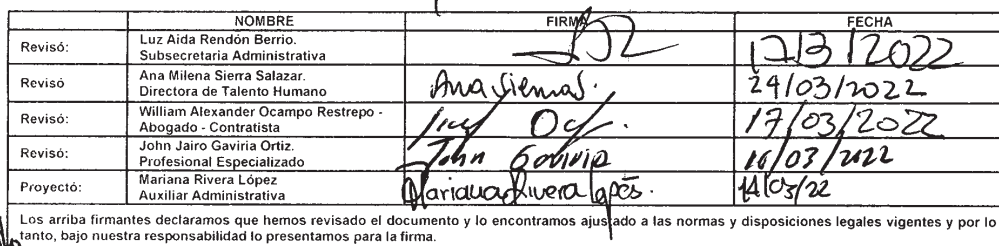 NOMBRE FIRMA FECHA
Revisó: Luz Aida Rendón Berrio.
Subsecretaria Administrativa 17/3/2022
Revisó Ana Milena Sierra Salazar.
Directora de Talento Humano Ana Sierra S. 24/03/2022
Revisó: William Alexander Ocampo Restrepo -
Abogado - Contratista 17/03/2022
Revisó: John Jairo Gaviria Ortiz.
Profesional Especializado John Gaviria 16/03/2022
Proyectó: Mariana Rivera López
Auxiliar Administrativa Mariana Rivera López. 14/03/22
Los arriba firmantes declaramos que hemos revisado el documento y lo encontramos ajustado a las normas y disposiciones legales vigentes y por lo
tanto, bajo nuestra responsabilidad lo presentamos para la firma.